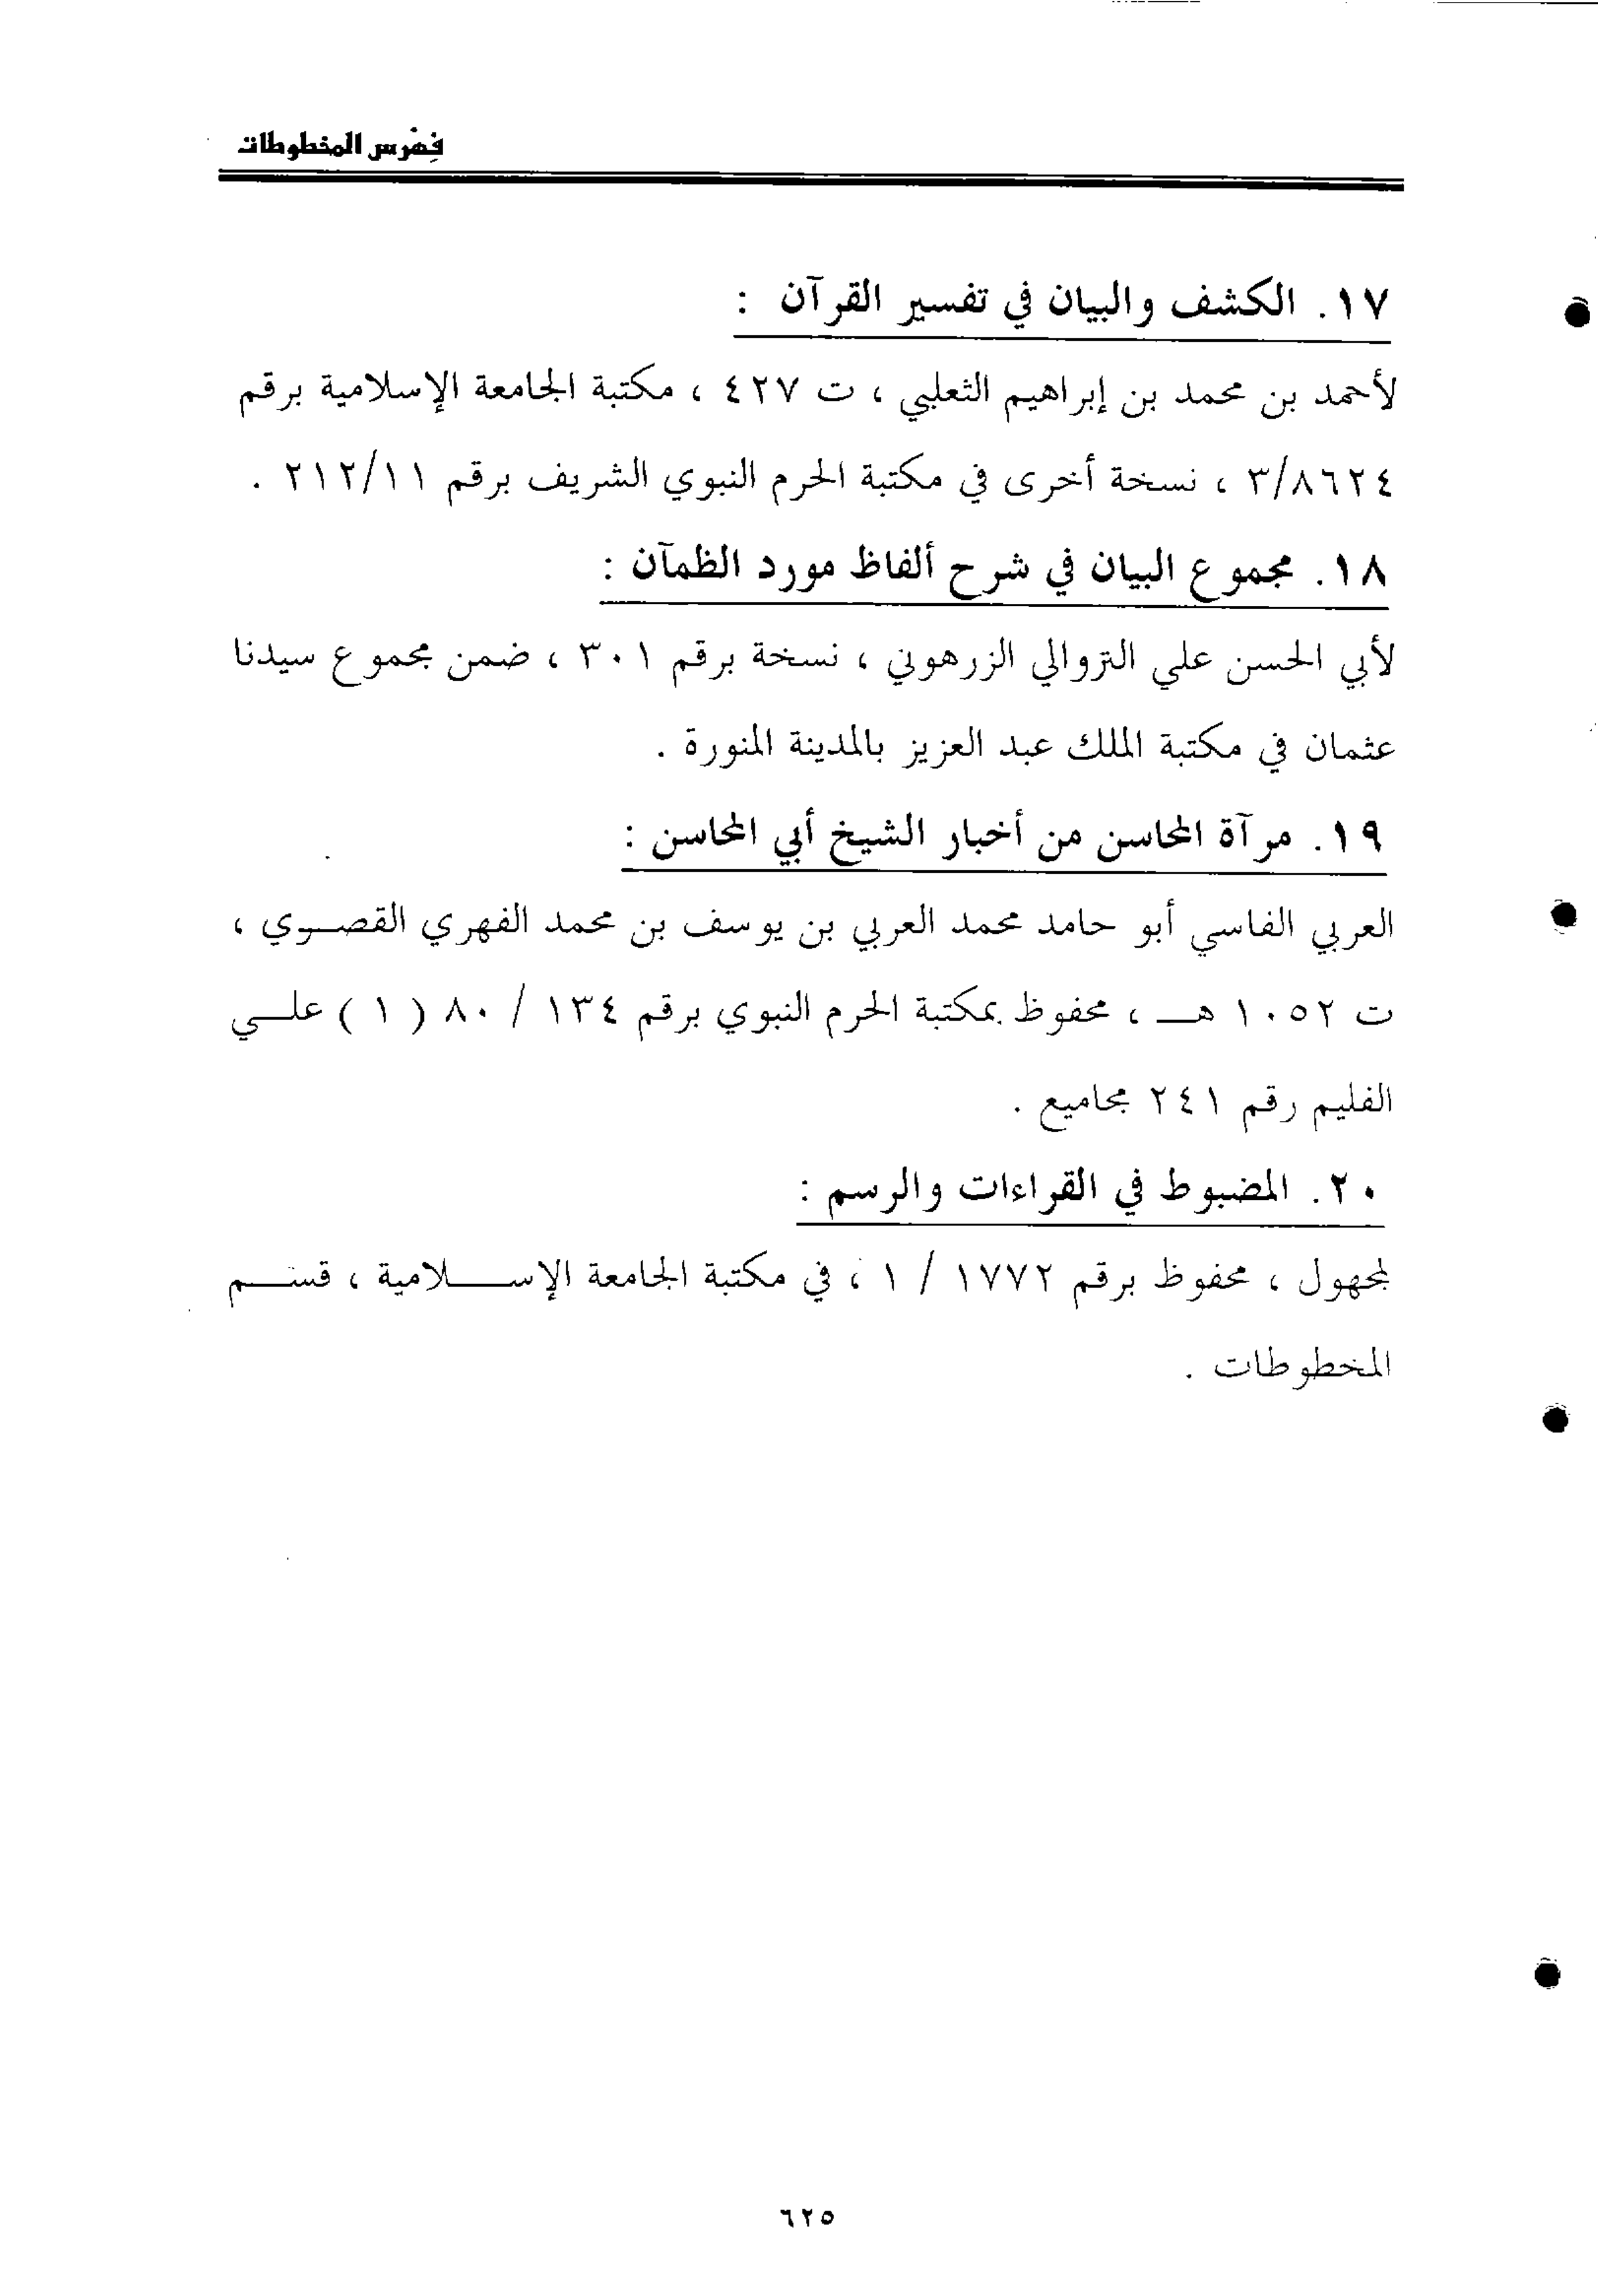 فهرس المخطوطات
١٧. الكشف والبيان في تفسير القرآن :
لأحمد بن محمد بن إبراهيم الثعلبي ، ت ٤٢٧ ، مكتبة الجامعة الإسلامية برقم
٣/٨٦٢٤ ، نسخة أخرى في مكتبة الحرم النبوي الشريف برقم ٢١٢/١١ .
١٨. مجموع البيان في شرح ألفاظ مورد الظمآن :
لأبي الحسن علي التروالي الزرهوني ، نسخة برقم ٣٠١ ، ضمن مجموع سيدنا
عثمان في مكتبة الملك عبد العزيز بالمدينة المنورة .
١٩. مرآة المحاسن من أخبار الشيخ أبي المحاسن :
العربي الفاسي أبو حامد محمد العربي بن يوسف بن محمد الفهري القصوي ،
ت ١٠٥٢ هـ ، محفوظ بمكتبة الحرم النبوي برقم ١٣٤ / ٨٠ ( ١ ) علي
الفليم رقم ٢٤١ مجاميع .
٢٠. المضبوط في القراءات والرسم :
لمجهول ، محفوظ برقم ١٧٧٢ / ١ ، في مكتبة الجامعة الإسلامية ، قسم
المخطوطات .
٦٢٥